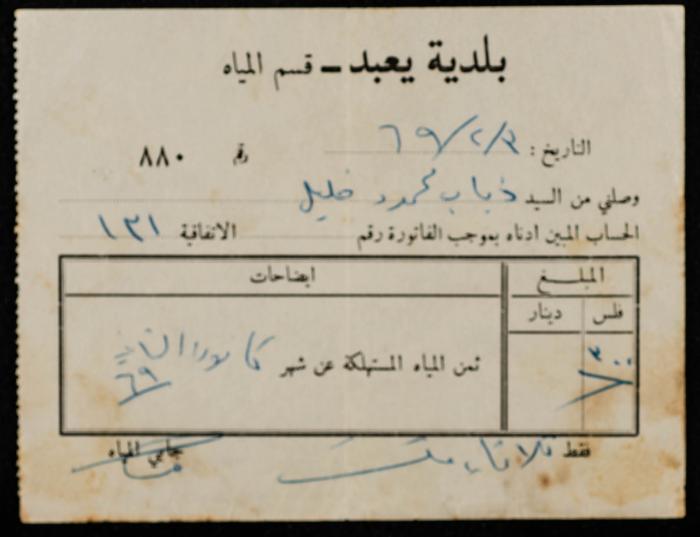 بلدية يعبد ــ قسم المياه
التاريخ : ٦٩/٢/٣ رقم ٨٨٠
وصلني من السيد ذياب محمود خليل
الحساب المبين ادناه بموجب الفاتورة رقم الاتفاقية ١٣١
المبلغ ايضاحات
فلس دينار
٣٠٠ ثمن المياه المستهلكة عن شهر كانون الثاني ٦٩
فقط جابي المياه